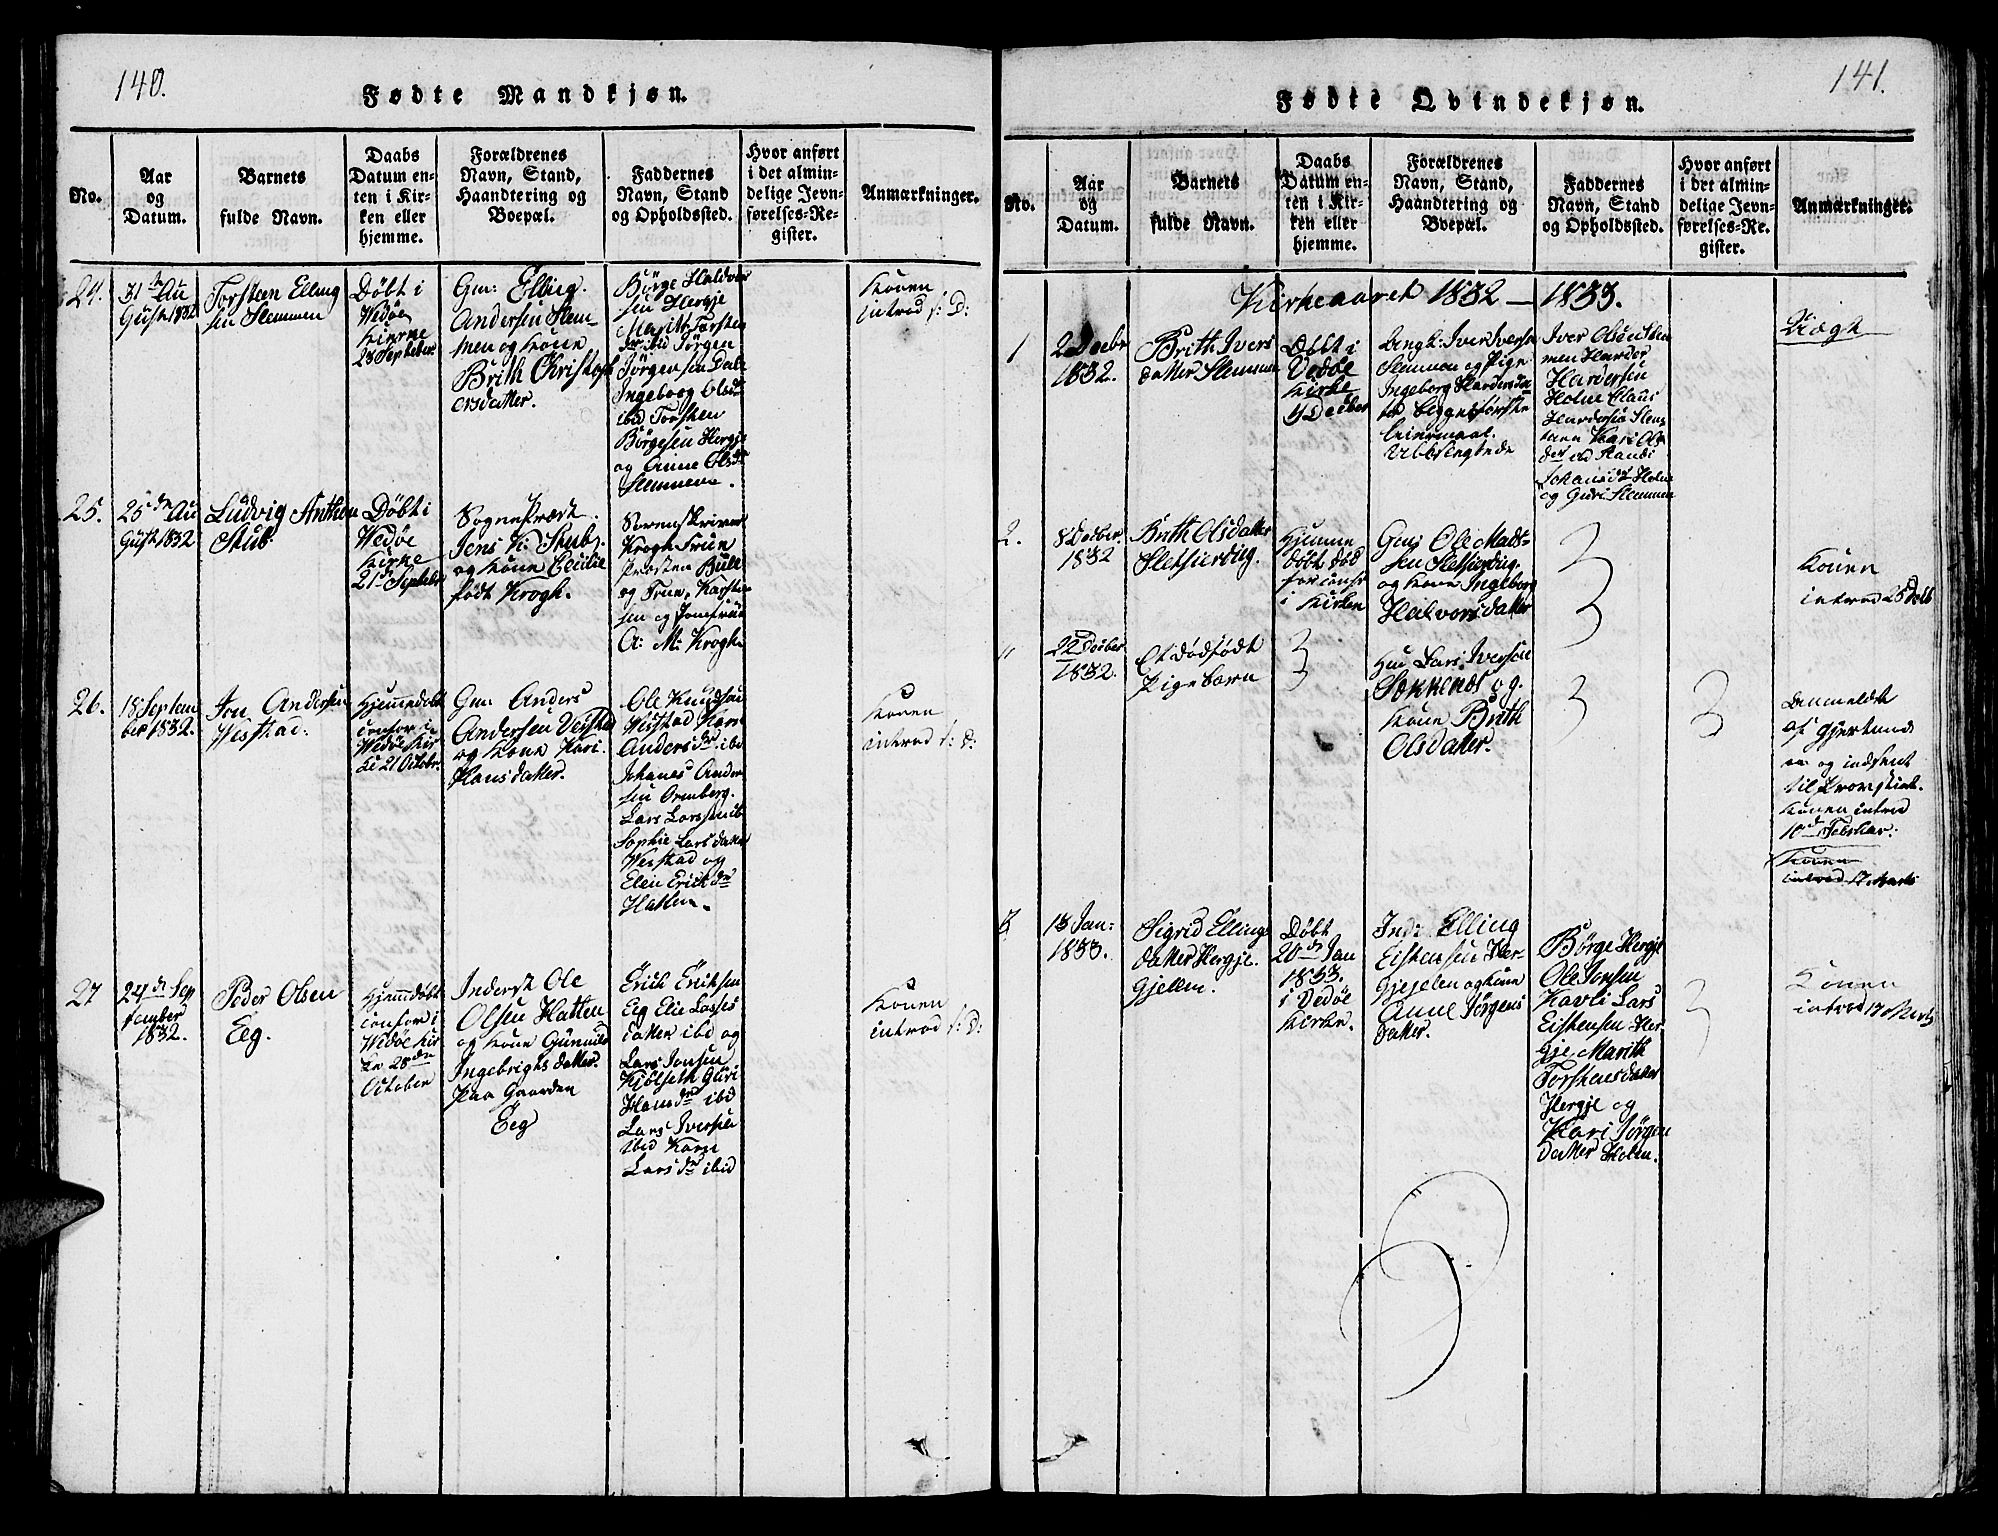 140.
Fødte Mandkjøn.
No.
Aar
og
Datum.
Barnets
fulde Navn.
Daabs
Datum en-
ten i Kir-
ken eller
hjemme.
Forældrenes
Navn, Stand,
Haandtering og
Boepæl.
Faddernes
Navn, Stand
og Opholdssted.
Hvor anført
i det almin-
delige Jevn-
førelses-Re-
gister.
Anmærkninger.
24.
31te Au
Gust 1832
Torsteen Elling
sen Slemmen
Døbt i
Wedøe
Kirke
23 September
Gm: Elling
Andersen Slem-
men og Kone
Brith Christoph
ersdatter.
Børge Haldvor
sen Hergje
Marith Torsten
dr ibid Jørgen
Jørgensen Dale
Ingeborg Olsdr
ibid Torsten
Børgesen Hergje
og Anne Olsdr
Slemmen.
Konen
introd s: D:
25.
25de Au
Gust 1832
Ludvig Anthon
Stub.
Døbt i
Wedøe
Kirke
21de September
Sognepræst
Jens K: Stub
og Kone Cecilie
født Krogh.
Sorenskriver
Krogh Frue
Præsten Bull
og Frue, Karsten
sen og Jomfrue
A: M: Krogh
26.
18 Septem
ber 1832.
Jon Andersen
Westad.
Hjemmedøbt
confor i
Wedøe Kir
ke 21 Octobr.
Gm: Anders
Andersen Vestad
og Kone Kari
Hansdatter.
Ole Knudsen
Westad Karn
Andersdr. ibd
Johanes Ander
sen Orenberg.
Lars Larssen ib
Sophie Larsdatter
Westad og
Elen Erichdr
Hatlen.
Konen
introd s: d:
27
24de Sep
tember
1832.
Peder Olsen
Eeg.
Hjemmedøbt
confor i
Wedøe Kir
ke 28de
October
Inderst Ole
Olsen Hatten
og Kone Gunnild
Ingebrigtsdatter.
paa Gaarden
Eeg
Erich Erichsen
Eeg Elie Lasses
datter ibd og
Lars Jonsen
Kjølseth Guri
Hansdr ibid
Lars Iversen
ibid Karn
Larsdr ibid
Konen
introd s: D:
141.
Fødte Qvindekjøn.
No.
Aar
og
Datum.
Barnets
fulde Navn.
Daabs
Datum en-
ten i Kir-
ken eller
hjemme.
Forældrenes
Navn, Stand,
Haandtering og
Boepæl.
Faddernes
Navn, Stand
og Opholdssted.
Hvor anført
i det almin-
delige Jevn-
førelses-Re-
gister.
Anmærkninger.
Kirkeaaret 1832 — 1833.
1
2 Decbr
1832.
Brith Ivers
datter Slemmen
Døbt i
Vedøe
Kirke
9 Decber
Ungk: Iver Iversen
Slemmen og Pige
Ingeborg Hardersdat
ter begges første
Leiermaal.
Iver Olsen Slem
men Harder
Hardersen
Holm Claus
Hardersen Slem
Kari Ols
dr Randi
Johansdr Holm
og Guri Slemmen
Uægt
2.
8 Decber
1832
Brith Olsdatter
Sletfierding.
Hjemme
døbt død
før confr
i Kirken
Gm: Ole Mads-
sen Sletfierding.
og Kone Ingeborg
Halvorsdatter
Konen
introd 25 Decb
"
22 Decber
1832.
Et dødfødt
Pigebarn
Lars Iversen
Sækkenæs og
Kone Brith
Olsdatter.
Anmeldt
af
og indsent
til
Konen introd
10de Februar.
Konen
introd 17 Marts
3
13 Jan:
1833.
Sigrid Ellings
datter Hergje-
Gjellen.
Døbt
20de Jan
1833.
i Vedøe
Kirke.
Ind: Elling
Eistensen Her-
gjegjelen og Kone
Anne Jørgens
datter.
Børge Hergje
Ole Jonsen
Havli Lars
Eistensen Her-
gje Marith
Torstensdatter
Hergje og
Kari Jørgen
datter Holm.
Konen
introd 17 Marts